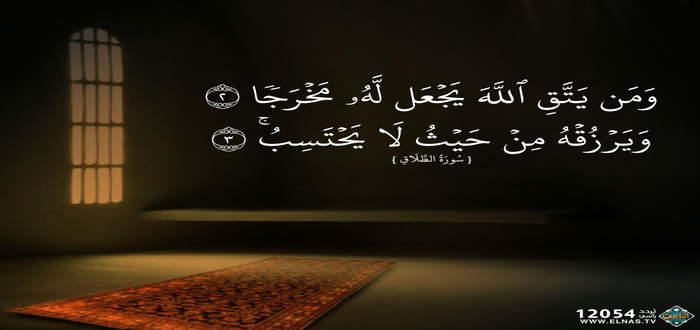 وَمَن يَتَّقِ ٱللَّهَ يَجۡعَل لَّهُۥ مَخۡرَجٗا ٢
وَيَرۡزُقۡهُ مِنۡ حَيۡثُ لَا يَحۡتَسِبُۚ ٣
{ سُورَةُ الطَّلَاقِ }
12054 تردد رأسي
WWW.ELNAS.TV
الناس